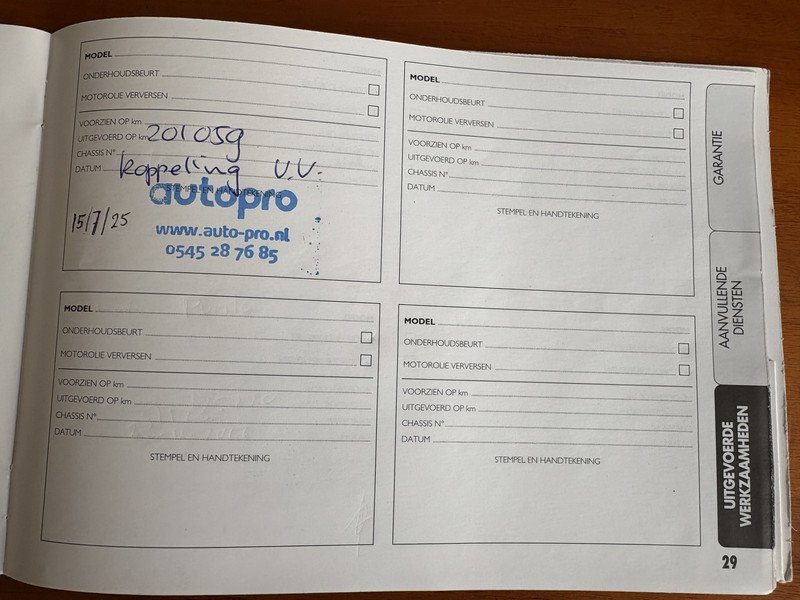 MODEL
ONDERHOUDSBEURT
MOTOROLIE VERVERSEN
VOORZIEN OP km
UITGEVOERD OP km 201059
CHASSIS N°
DATUM koppeling V.V.
STEMPEL EN HANDTEKENING
autopro
15/7/25
www.auto-pro.nl
0545 28 76 85
MODEL
ONDERHOUDSBEURT
MOTOROLIE VERVERSEN
VOORZIEN OP km
UITGEVOERD OP km
CHASSIS N°
DATUM
STEMPEL EN HANDTEKENING
MODEL
ONDERHOUDSBEURT
MOTOROLIE VERVERSEN
VOORZIEN OP km
UITGEVOERD OP km
CHASSIS N°
DATUM
STEMPEL EN HANDTEKENING
MODEL
ONDERHOUDSBEURT
MOTOROLIE VERVERSEN
VOORZIEN OP km
UITGEVOERD OP km
CHASSIS N°
DATUM
STEMPEL EN HANDTEKENING
GARANTIE
AANVULLENDE
DIENSTEN
UITGEVOERDE
WERKZAAMHEDEN
29